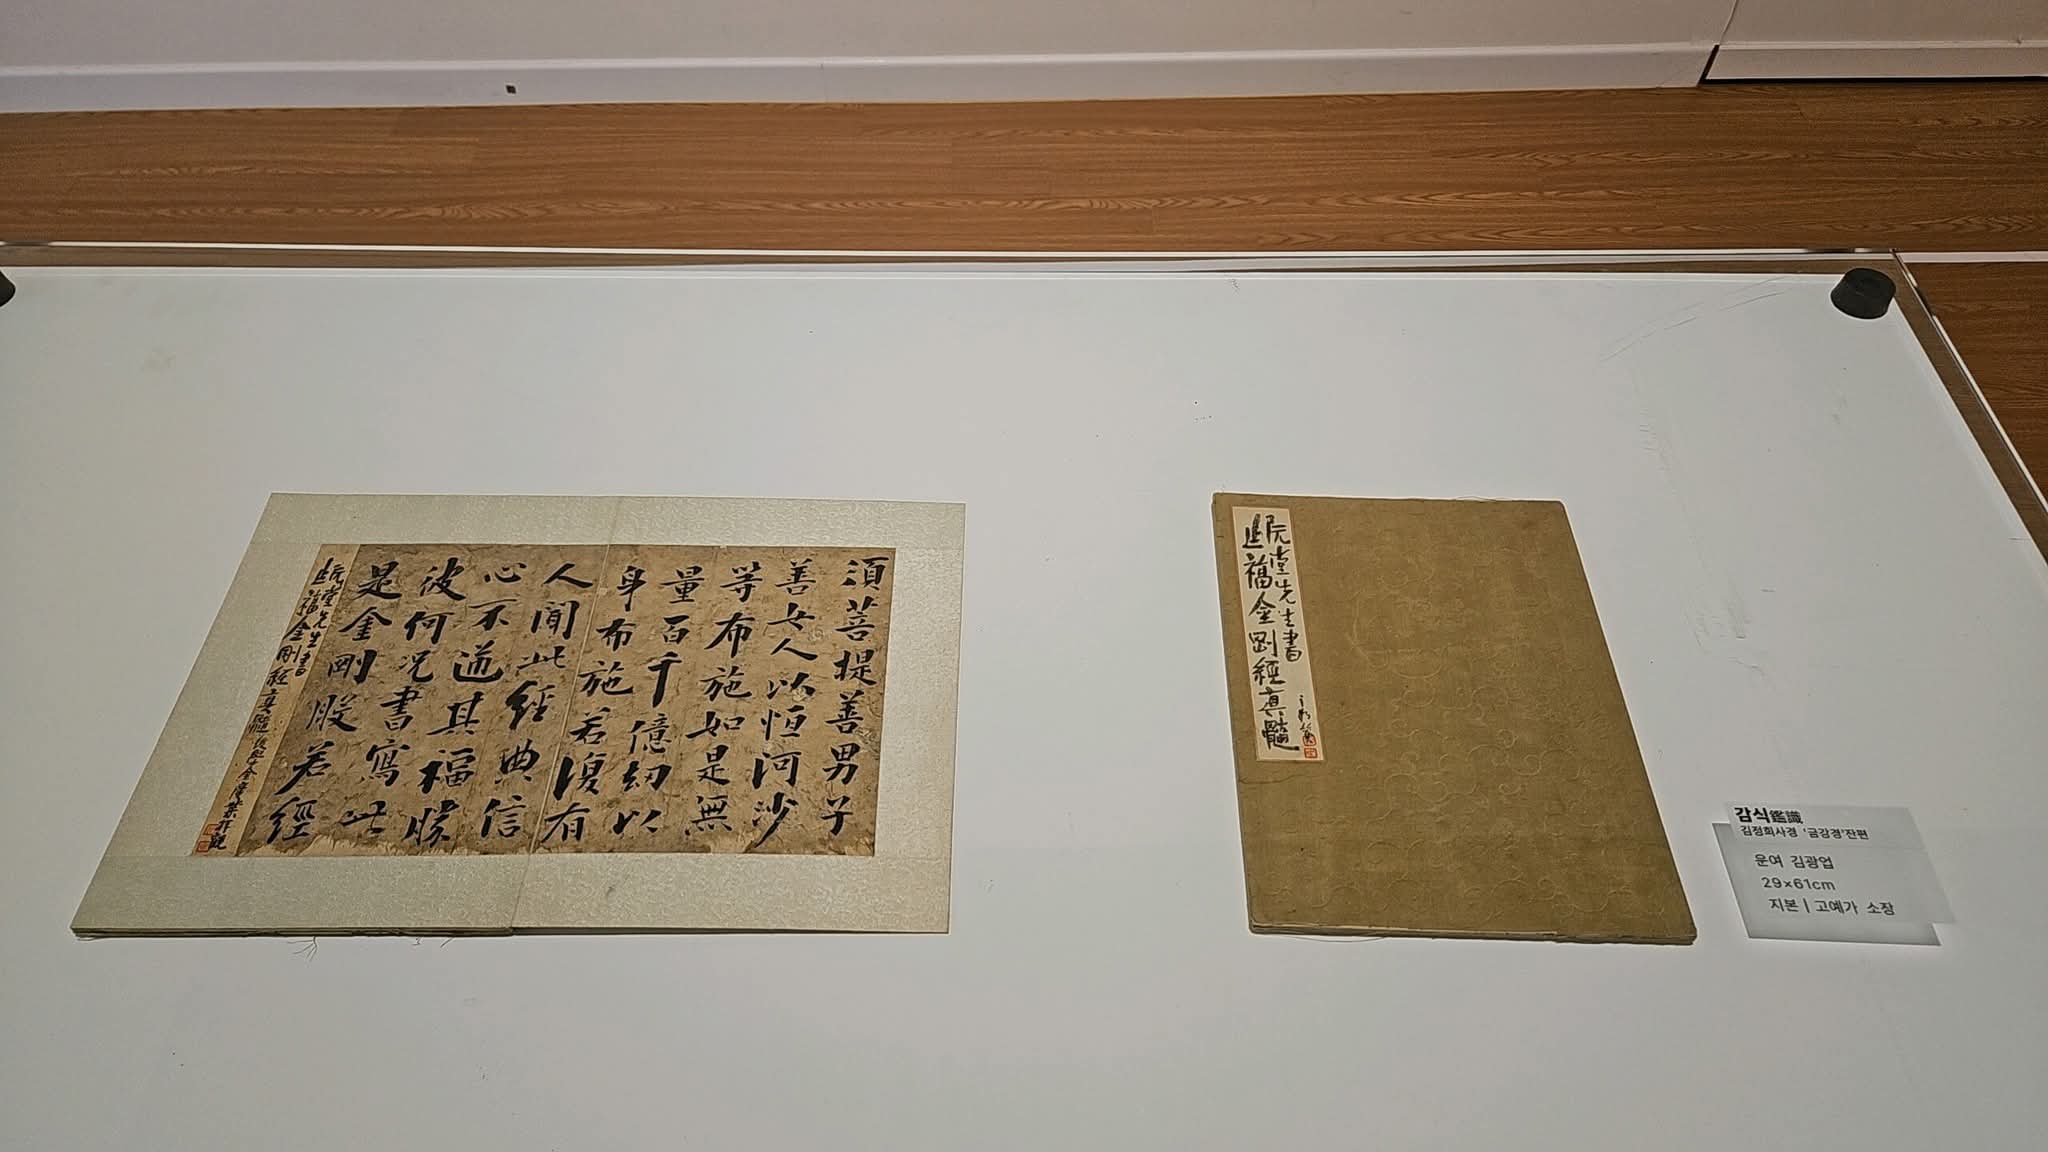 須菩提善男子
善女人以恒河沙
等布施如是無
量百千億劫以
身布施若復有
人聞此經典信
心不逆其福勝
彼何况書寫此
是金剛般若經
阮堂先生書
福金剛經真髓 後學金廣業拜觀
阮堂先生書
福金剛經真髓
감식鑑識
김정희사경 '금강경'잔편
운여 김광업
29×61cm
지본 | 고예가 소장